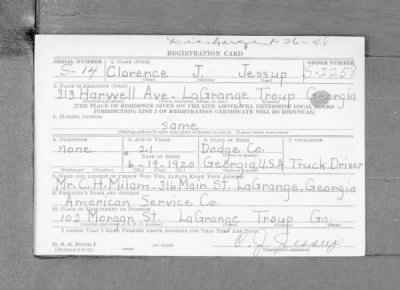 Discharged 1-26-48
REGISTRATION CARD
SERIAL NUMBER 1. NAME (Print) ORDER NUMBER
S-14 Clarence J. Jessup S-2258
2. PLACE OF RESIDENCE (Print)
313 Harwell Ave. LaGrange Troup Georgia
[THE PLACE OF RESIDENCE GIVEN ON THE LINE ABOVE WILL DETERMINE LOCAL BOARD
JURISDICTION; LINE 2 OF REGISTRATION CERTIFICATE WILL BE IDENTICAL]
3. MAILING ADDRESS
same
4. TELEPHONE 5. AGE IN YEARS 6. PLACE OF BIRTH 7. OCCUPATION
none 21 Dodge Co.
DATE OF BIRTH
6-19-1920 Georgia, U.S.A. Truck Driver
8. NAME AND ADDRESS OF PERSON WHO WILL ALWAYS KNOW YOUR ADDRESS
Mr. C. H. Milam. 316 Main St. LaGrange, Georgia
9. EMPLOYER'S NAME AND ADDRESS
American Service Co.
10. PLACE OF EMPLOYMENT OR BUSINESS
102 Morgan St. LaGrange Troup Ga.
I AFFIRM THAT I HAVE VERIFIED ABOVE ANSWERS AND THAT THEY ARE TRUE.
D. S. S. FORM 1
C. J. Jessup